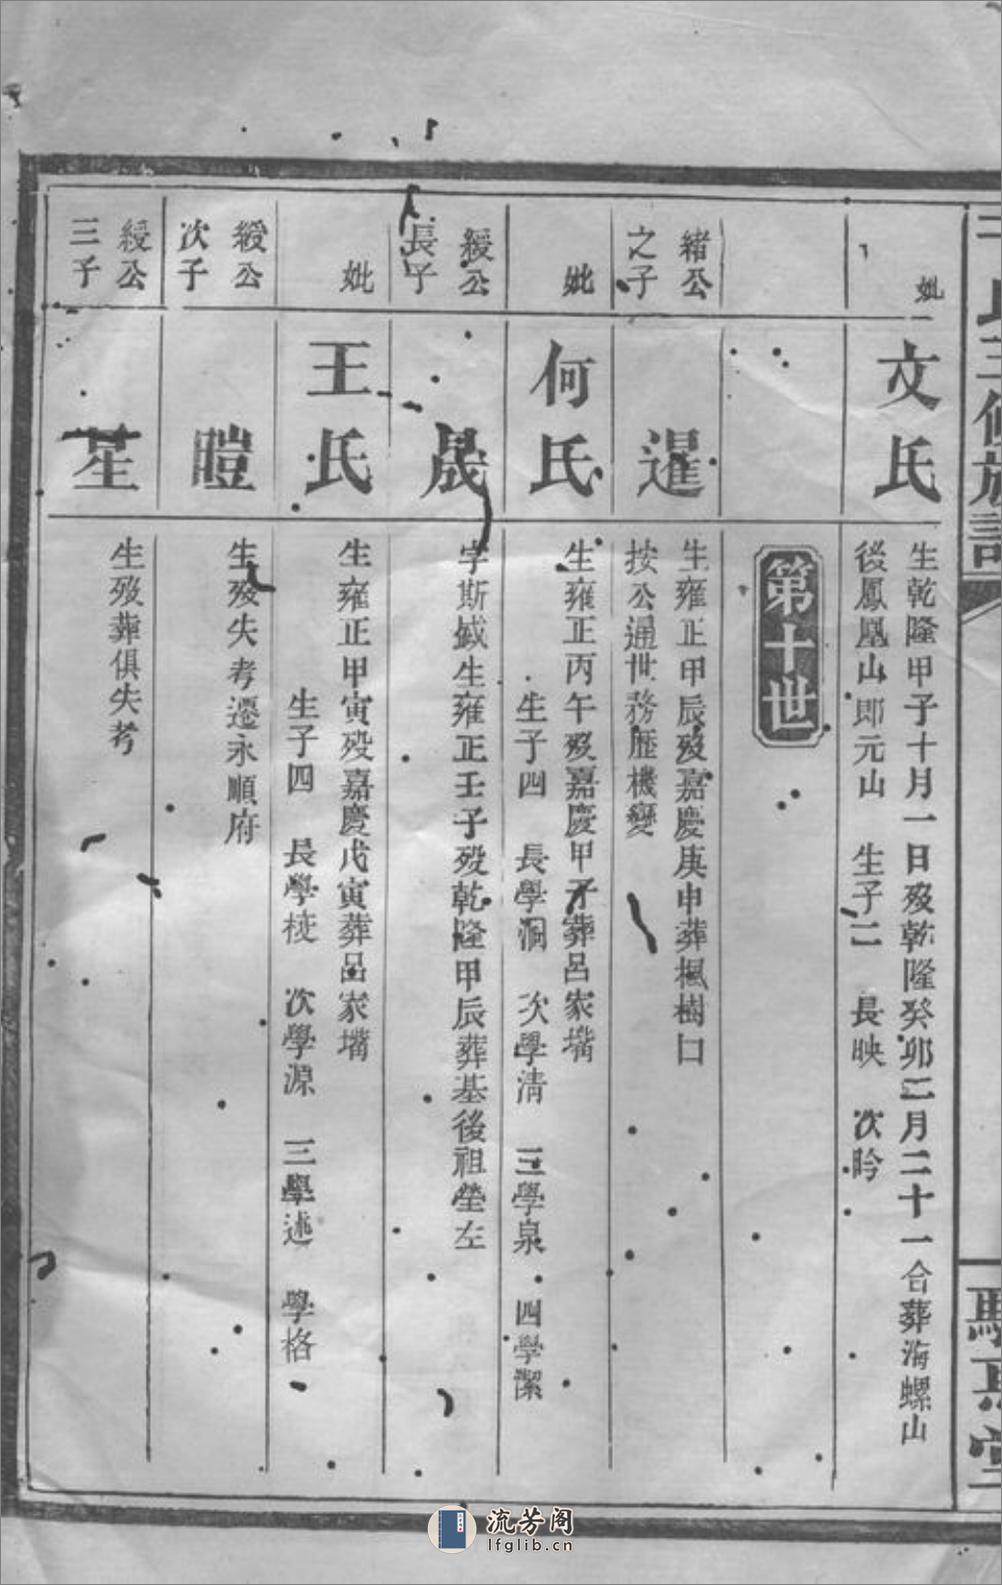 妣
文氏
生乾隆甲子十月一日歿乾隆癸卯二月二十一合葬海螺山
後鳳凰山郎元山 生子二 長映 次昑
第十世
緒公
之子
暹
生雍正甲辰歿嘉慶庚申葬楓樹口
按公通世務歷機變
妣
何氏
生雍正丙午歿嘉慶甲子葬呂家嘴
生子四 長學洞 次學清 三學泉 四學潔
綬公
長子
晟
字斯盛生雍正壬子歿乾隆甲辰葬基後祖塋左
妣
王氏
生雍正甲寅歿嘉慶戊寅葬呂家嘴
生子四 長學梭 次學源 三學述 學格
綬公
次子
暟
生歿失考遷永順府
綬公
三子
星
生歿葬俱失考
氏三修族譜
堂
流芳阁
lfglib.cn